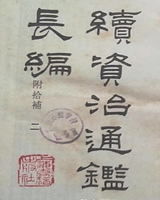 續資治通鑑
長編
附給補 二